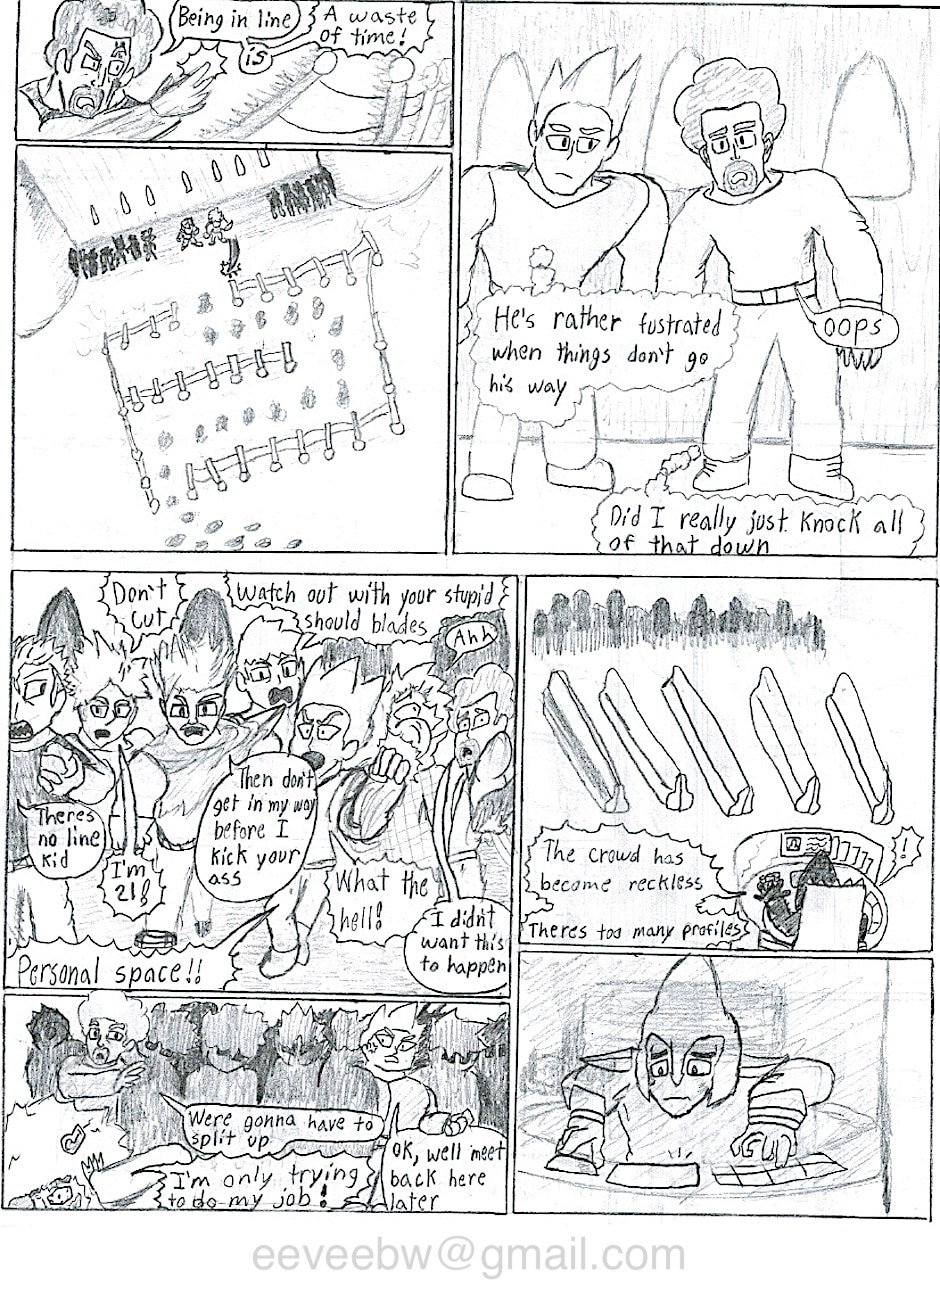 Being in line
is
A waste
of time!
He's rather fustrated
when things don't go
his way
OOPS
Did I really just knock all
of that down
Don't
cut
Watch out with your stupid
should blades
Ahh
Theres
no line
kid
I'm
21!
Then don't
get in my way
before I
kick your
ass
What the
hell!
I didn't
want this
to happen
Personal space!!
The crowd has
become reckless
!
Theres too many profiles
Were gonna have to
split up
I'm only trying
to do my job!
OK, well meet
back here
later
eeveebw@gmail.com